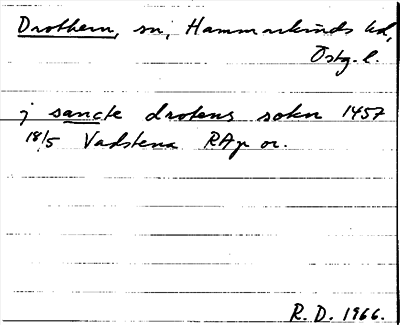 Drothem, sn, Hammarkinds hd,
Östg. l.
j sancte drotens sokn 1457
18/5 Vadstena RAp or.
R. D. 1966.